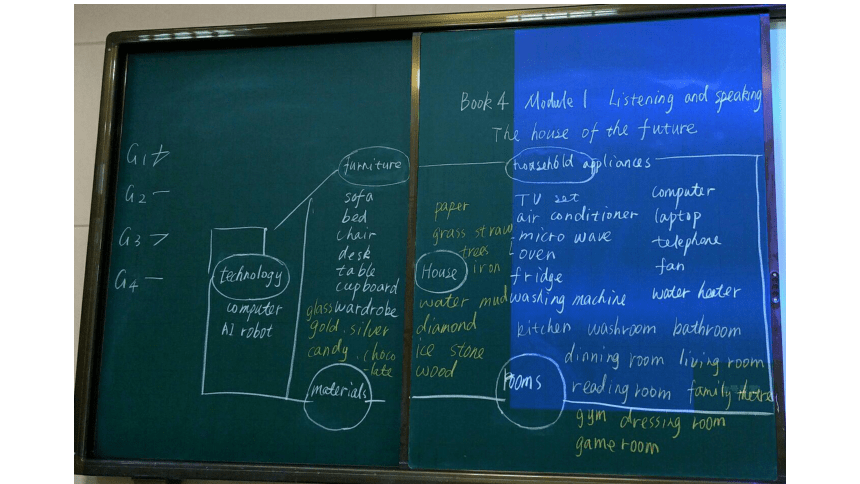 Book 4 Module 1 Listening and speaking
The house of the future
G1
G2
G3
G4
furniture
sofa
bed
chair
desk
table
cupboard
wardrobe
technology
computer
AI robot
glass
gold . silver
candy . choco
-late
materials
paper
grass straw
trees
iron
House
water mud
diamond
ice stone
wood
household appliances
TV set
air conditioner
micro wave
oven
fridge
washing machine
computer
laptop
telephone
fan
water heater
kitchen washroom bathroom
dinning room living room
rooms
reading room family
gym dressing room
game room